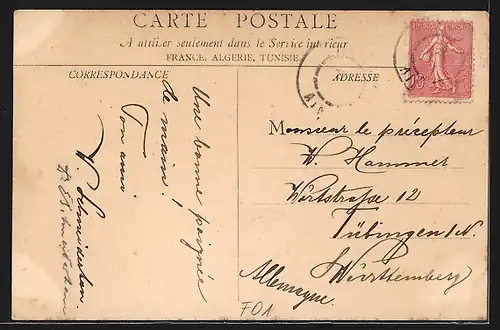 CARTE POSTALE
A utiliser seulement dans le Service intérieur
FRANCE, ALGERIE, TUNISIE
CORRESPONDANCE
ADRESSE
Une bonne poignée
de main!
Ton ami
W. Schneiderhan.
Monsieur le précepteur
W. Hammer
Wörtstraße 12
Tübingen a/N.
Württemberg
Allemagne.
F01
10
AIN